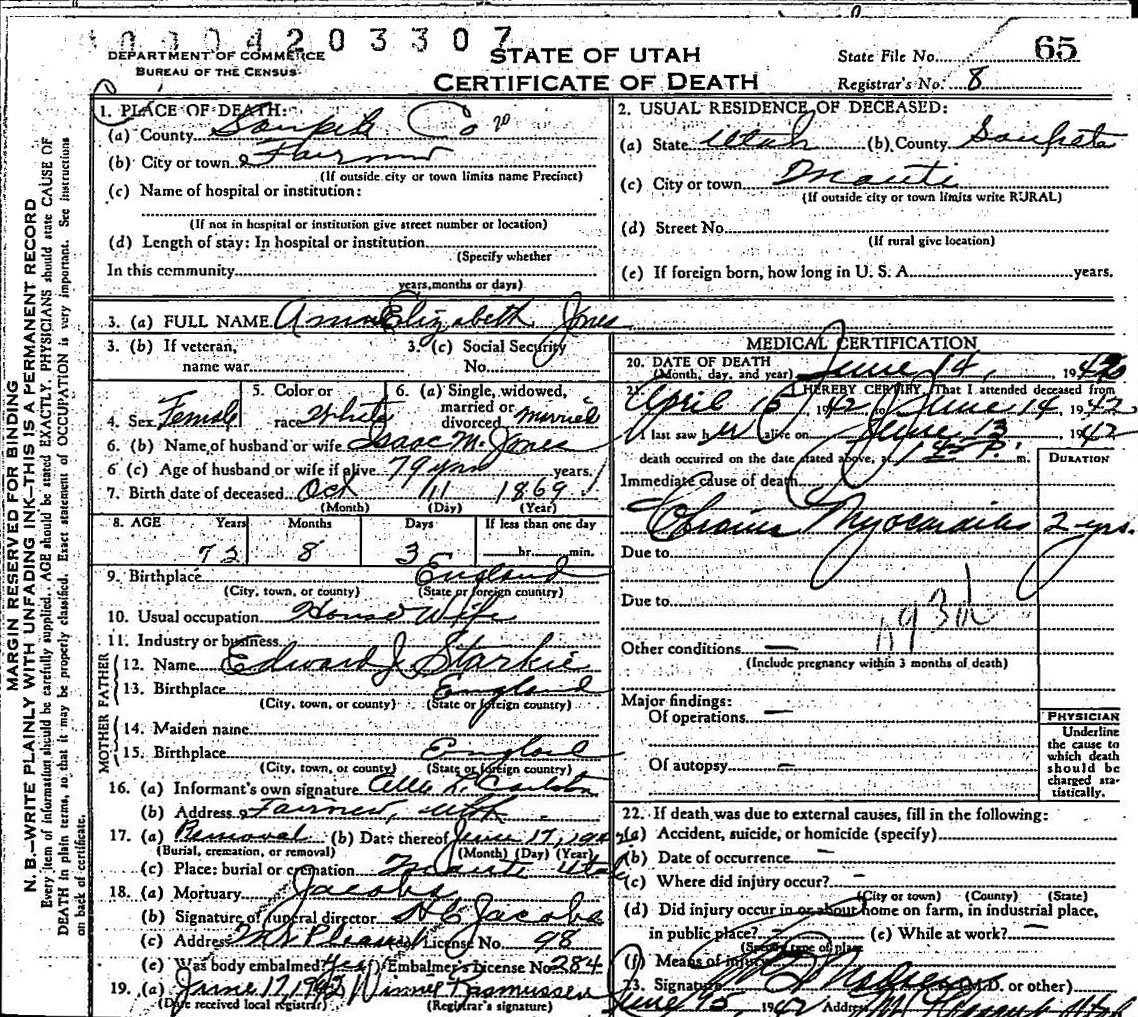 0004203307
DEPARTMENT OF COMMERCE
BUREAU OF THE CENSUS
STATE OF UTAH
CERTIFICATE OF DEATH
State File No. 65
Registrar's No. 8
MARGIN RESERVED FOR BINDING
N. B.—WRITE PLAINLY WITH UNFADING INK—THIS IS A PERMANENT RECORD
Every item of information should be carefully supplied. AGE should be stated EXACTLY. PHYSICIANS should state CAUSE OF
DEATH in plain terms, so that it may be properly classified. Exact statement of OCCUPATION is very important. See instructions
on back of certificate.
1. PLACE OF DEATH:
(a) County Sanpete Co 20
(b) City or town Fairview
(If outside city or town limits name Precinct)
(c) Name of hospital or institution:
(If not in hospital or institution give street number or location)
(d) Length of stay: In hospital or institution
(Specify whether
In this community
years, months or days)
2. USUAL RESIDENCE OF DECEASED:
(a) State Utah (b) County Sanpete
(c) City or town Manti
(If outside city or town limits write RURAL)
(d) Street No.
(If rural give location)
(e) If foreign born, how long in U. S. A. years.
3. (a) FULL NAME Ann Elizabeth Jones
3. (b) If veteran, name war
3. (c) Social Security No.
4. Sex Female
5. Color or race White
6. (a) Single, widowed, married or divorced Married
6. (b) Name of husband or wife Isaac M. Jones
6 (c) Age of husband or wife if alive 79 yrs years.
7. Birth date of deceased Oct 11 1869
(Month) (Day) (Year)
8. AGE Years Months Days If less than one day
72 8 3 hr. min.
9. Birthplace England
(City, town, or county) (State or foreign country)
10. Usual occupation House Wife
11. Industry or business
FATHER
12. Name Edward J Starkie
13. Birthplace England
(City, town, or county) (State or foreign country)
MOTHER
14. Maiden name
15. Birthplace England
(City, town, or county) (State or foreign country)
16. (a) Informant's own signature
(b) Address Fairview, Utah
17. (a) Removal (b) Date thereof June 17, 1942
(Burial, cremation, or removal) (Month) (Day) (Year)
(c) Place: burial or cremation Manti Utah
18. (a) Mortuary Jacobs
(b) Signature of funeral director H C Jacobs
(c) Address Mt Pleasant License No. 98
(e) Was body embalmed? Yes (f) Embalmer's License No. 284
19. (a) June 17, 1942 Winnie Rasmussen
(Date received local registrar) (Registrar's signature)
MEDICAL CERTIFICATION
20. DATE OF DEATH June 14, 1942
(Month, day, and year)
21. I HEREBY CERTIFY, That I attended deceased from
April 15 1942 to June 14, 1942
I last saw her alive on June 13 1942
death occurred on the date stated above, at m.
DURATION
Immediate cause of death
Chronic Myocarditis 2 yrs.
Due to
Due to
Other conditions —
(Include pregnancy within 3 months of death)
Major findings:
Of operations —
Of autopsy —
PHYSICIAN
Underline
the cause to
which death
should be
charged sta-
tistically.
22. If death was due to external causes, fill in the following:
(a) Accident, suicide, or homicide (specify)
(b) Date of occurrence —
(c) Where did injury occur? —
(City or town) (County) (State)
(d) Did injury occur in or about home on farm, in industrial place,
in public place? — (e) While at work? —
(Specify type of place)
(f) Means of injury
23. Signature (M.D. or other)
June 1942 Address Mt Pleasant Utah